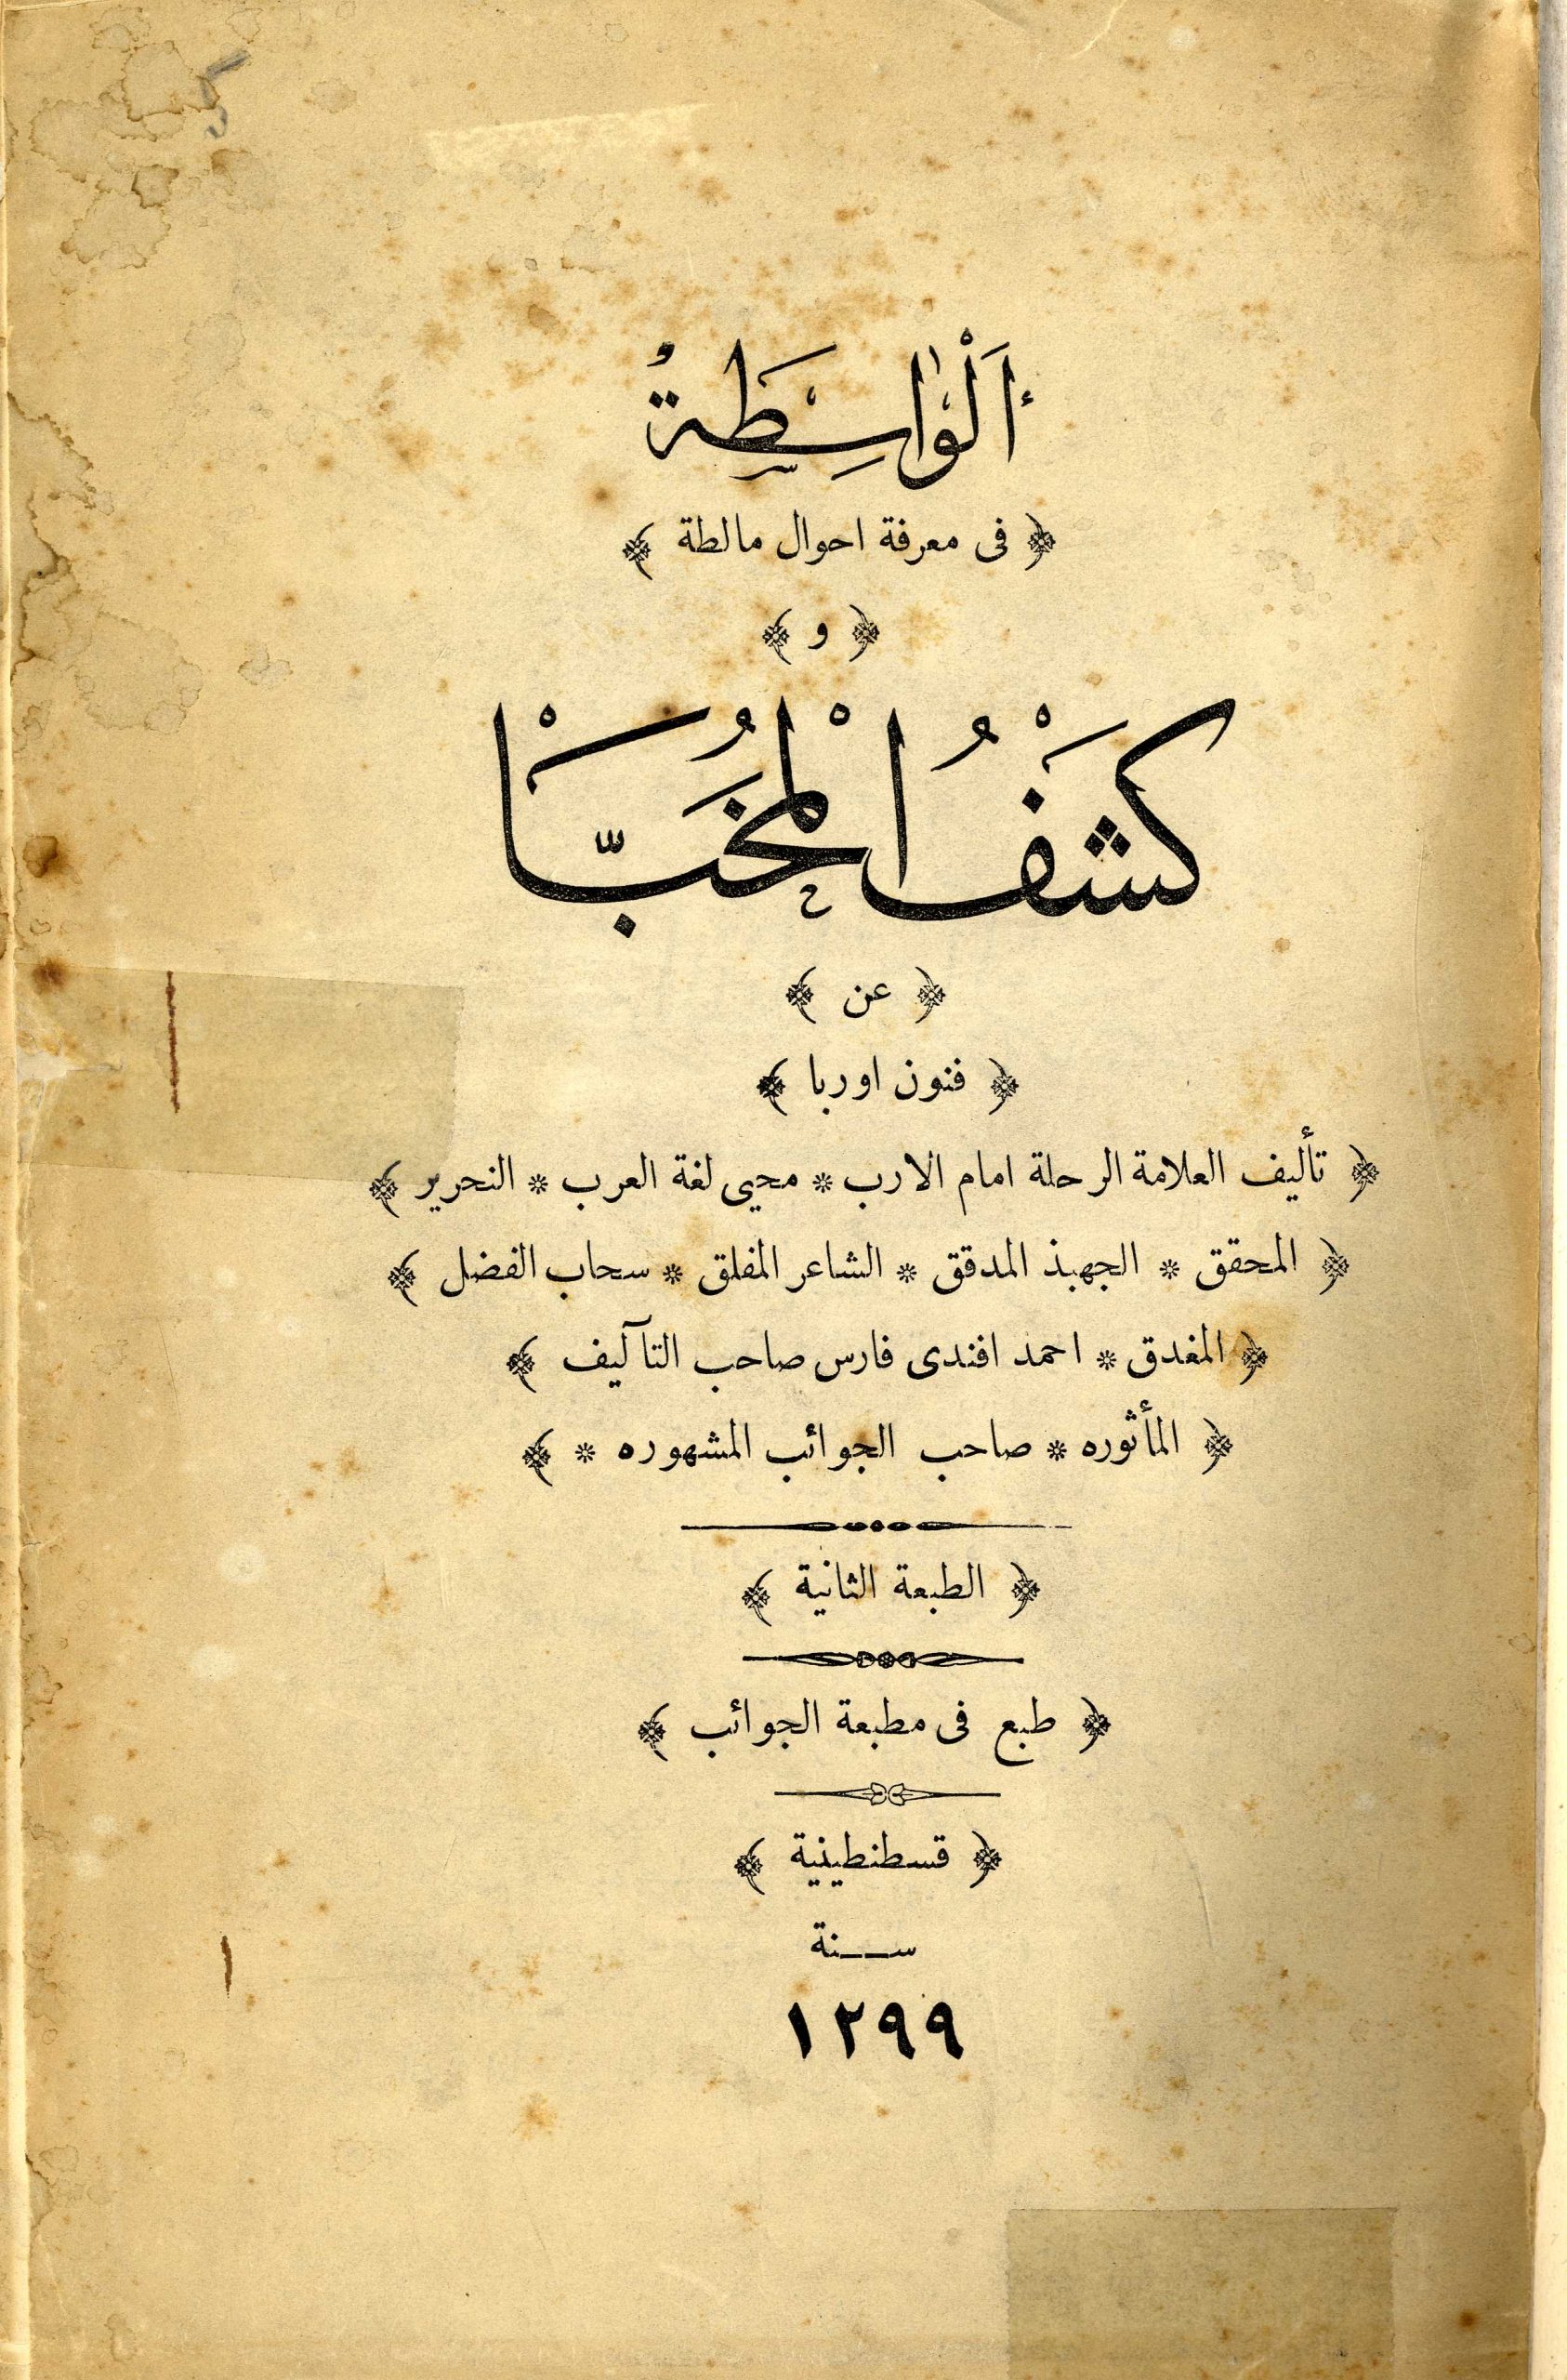 أَلْوٰاسِطَةُ
﴿ فى معرفة احوال مالطة ﴾
﴿ و ﴾
كَشْفُ الْمُخَبَّأْ
﴿ عن ﴾
﴿ فنون اوربا ﴾
﴿ تأليف العلامة الرحلة امام الارب * محيى لغة العرب * النحرير ﴾
﴿ المحقق * الجهبذ المدقق * الشاعر المفلق * سحاب الفضل ﴾
﴿ المغدق * احمد افندى فارس صاحب التآليف ﴾
﴿ المأثوره * صاحب الجوائب المشهوره * ﴾
﴿ الطبعة الثانية ﴾
﴿ طبع فى مطبعة الجوائب ﴾
﴿ قسطنطينية ﴾
ســـنة
١٢٩٩